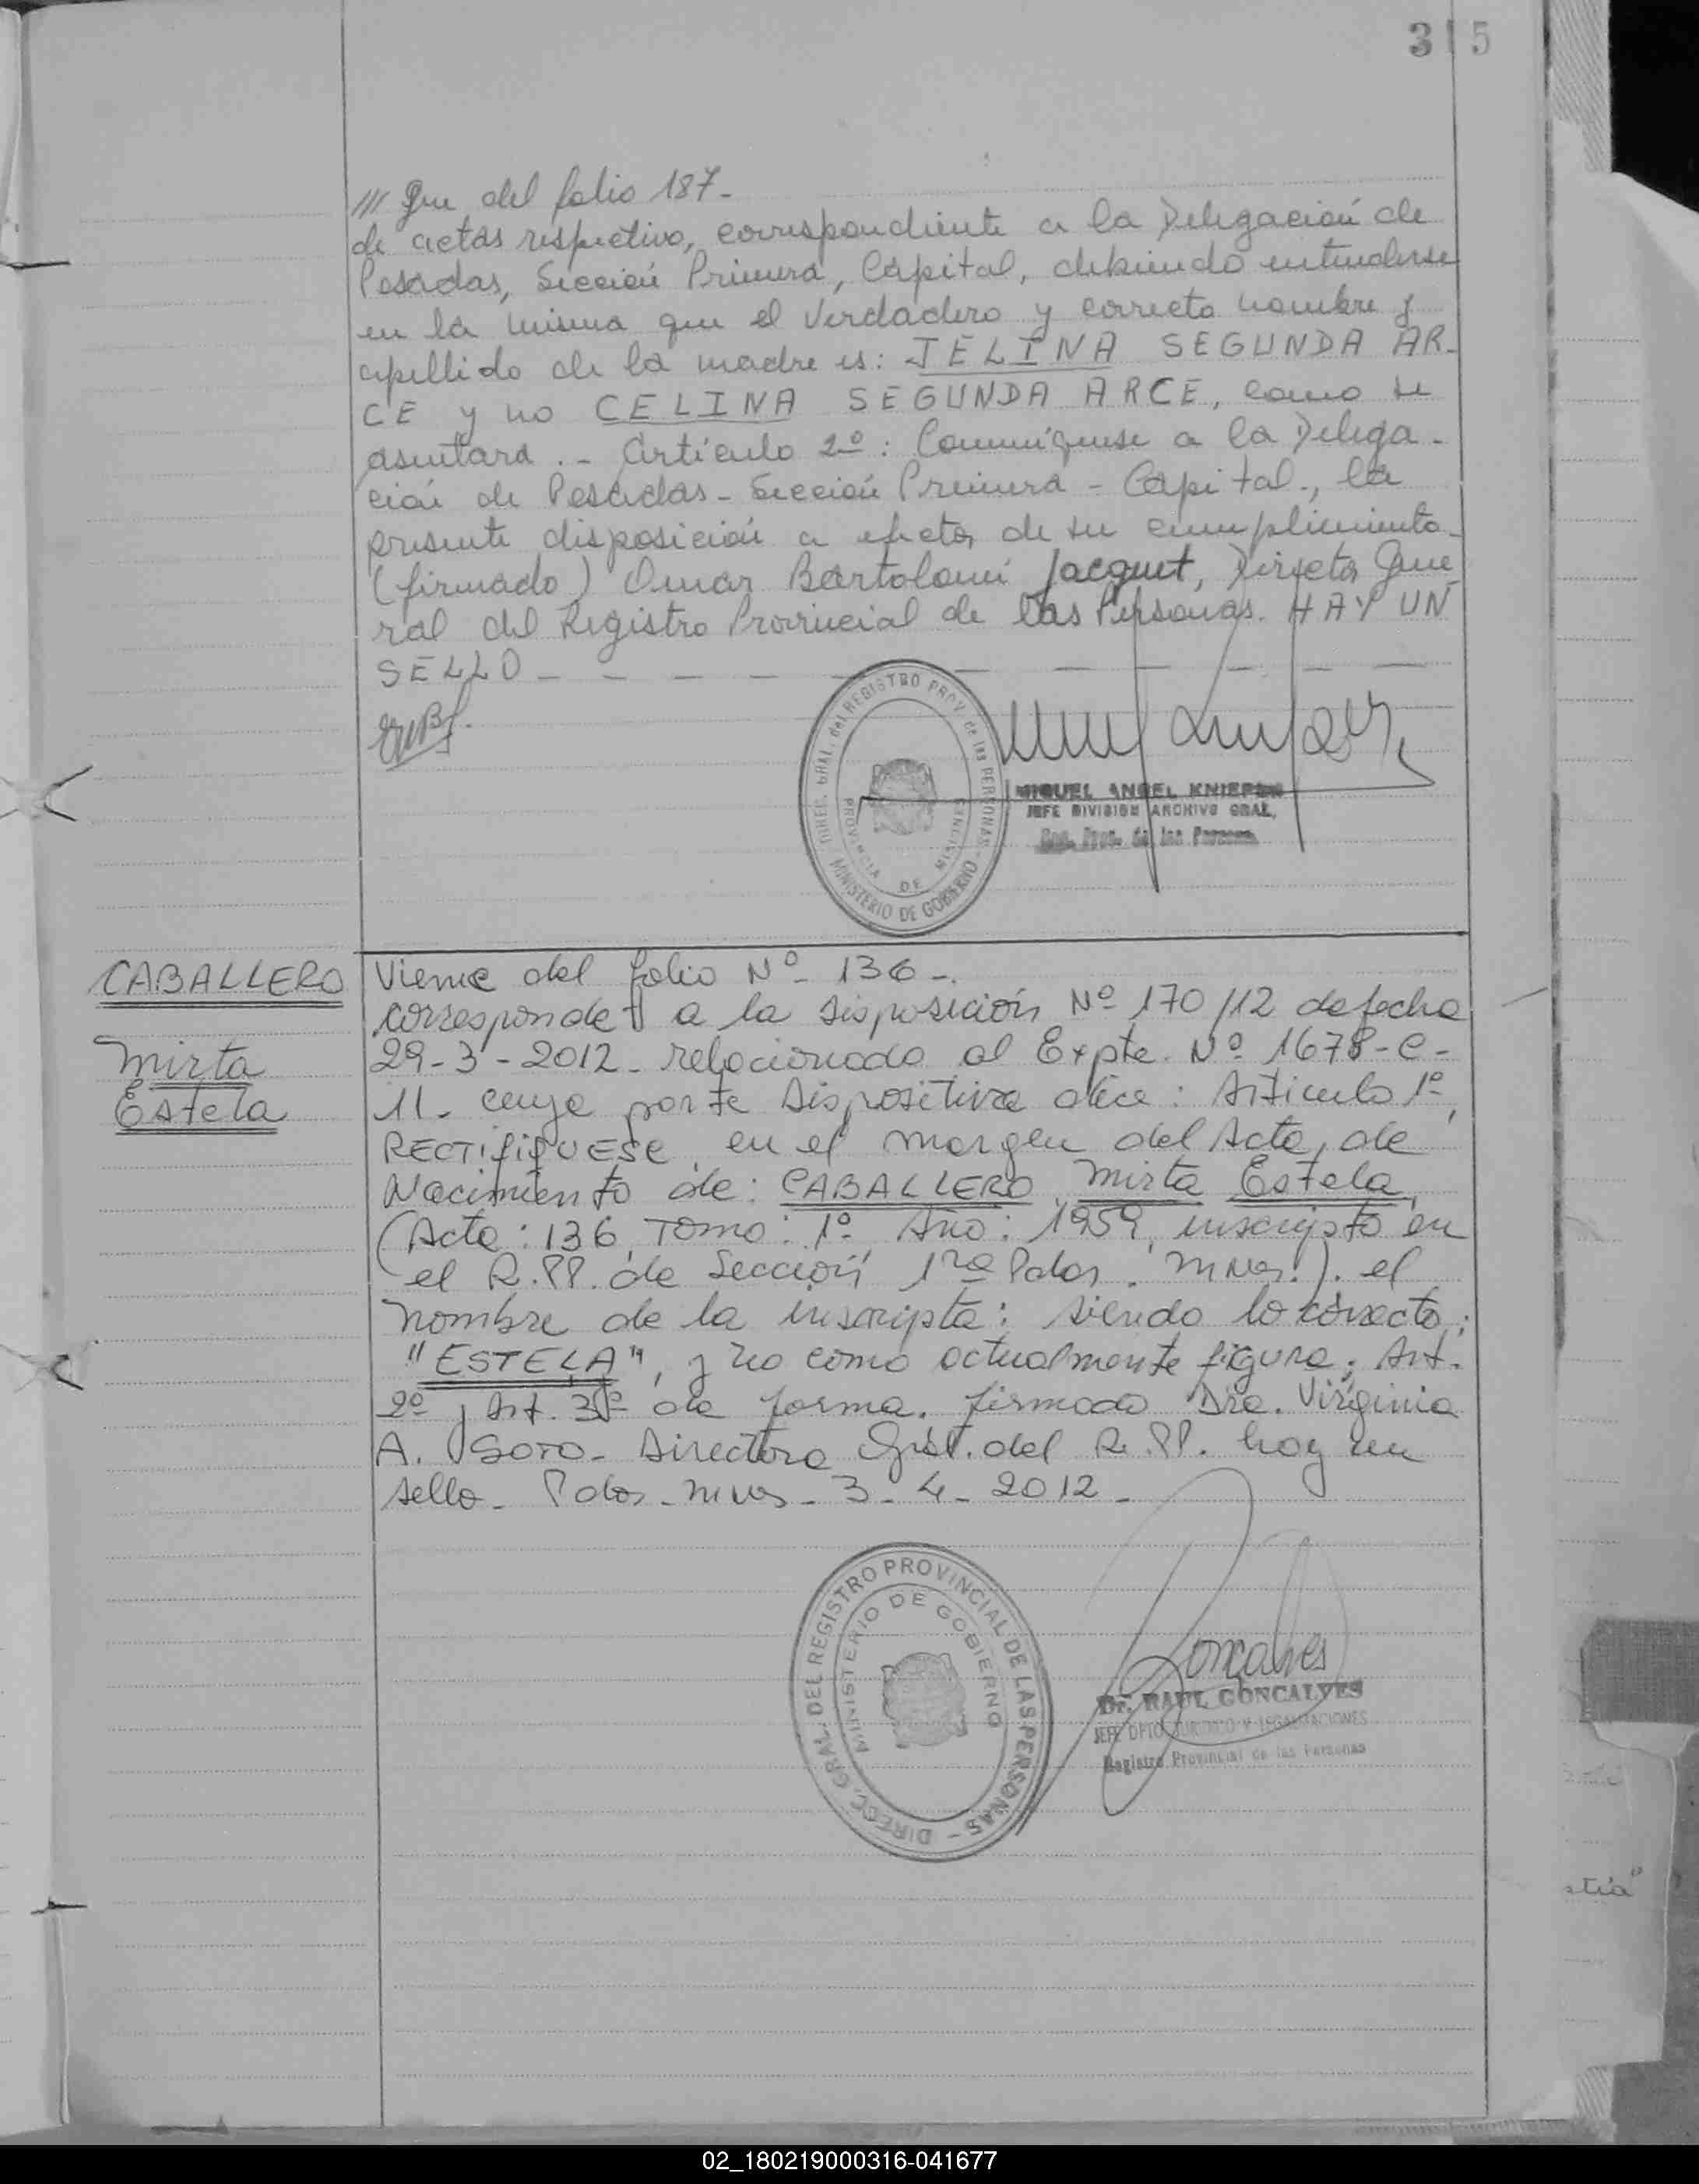 315
/// Gue del folio 187.-
de actas respectivo, correspondiente a la Delegación de
Posadas, Sección Primera, Capital, debiendo entenderse
en la misma que el verdadero y correcto nombre y
apellido de la madre es: JELINA SEGUNDA AR-
CE y no CELINA SEGUNDA ARCE, como se
asentara.- Artículo 2º: Comuníquese a la Delega-
ción de Posadas - Sección Primera - Capital., la
presente disposición a efectos de su cumplimiento.
(firmado) Omar Bartolomé Jacquet, Director Gene
ral del Registro Provincial de las Personas. HAY UN
SELLO - - - -
DIREC. GRAL. del REGISTRO PROV. de las PERSONAS
PROVINCIA DE MISIONES
MINISTERIO DE GOBIERNO
MIGUEL ANGEL
JEFE DIVISION ARCHIVO GRAL.
Reg. Prov. de las Personas
CABALLERO
Mirta
Estela
Viene del folio Nº - 136 -.
corresponde a la Disposición Nº 170/12 de fecha
29-3-2012. relacionado al Expte. Nº 1678-C-
11. cuya parte Dispositiva dice: Articulo 1º,
RECTIFIQUESE, en el margen del Acta, de
Nacimiento de: CABALLERO, Mirta Estela,
(Acta: 136, Tomo: 1º Año: 1959, inscripto en
el R.PP. de Sección 1ra Pdas. Mnes.). el
nombre de la inscripta: siendo lo correcto:
"ESTELA", y no como actualmente figura. Art.
2º y Art. 3º de forma. firmado Dra. Virginia
A. SOTO - Directora Gral. del R.PP. hay un
sello - Pdas. Mnes - 3-4-2012 -
DIRECC. GRAL. DEL REGISTRO PROVINCIAL DE LAS PERSONAS -
MINISTERIO DE GOBIERNO
Goncalves
Dr. RAUL GONCALVES
JEFE DPTO JURIDICO Y LEGALIZACIONES
Registro Provincial de las Personas
02_180219000316-041677